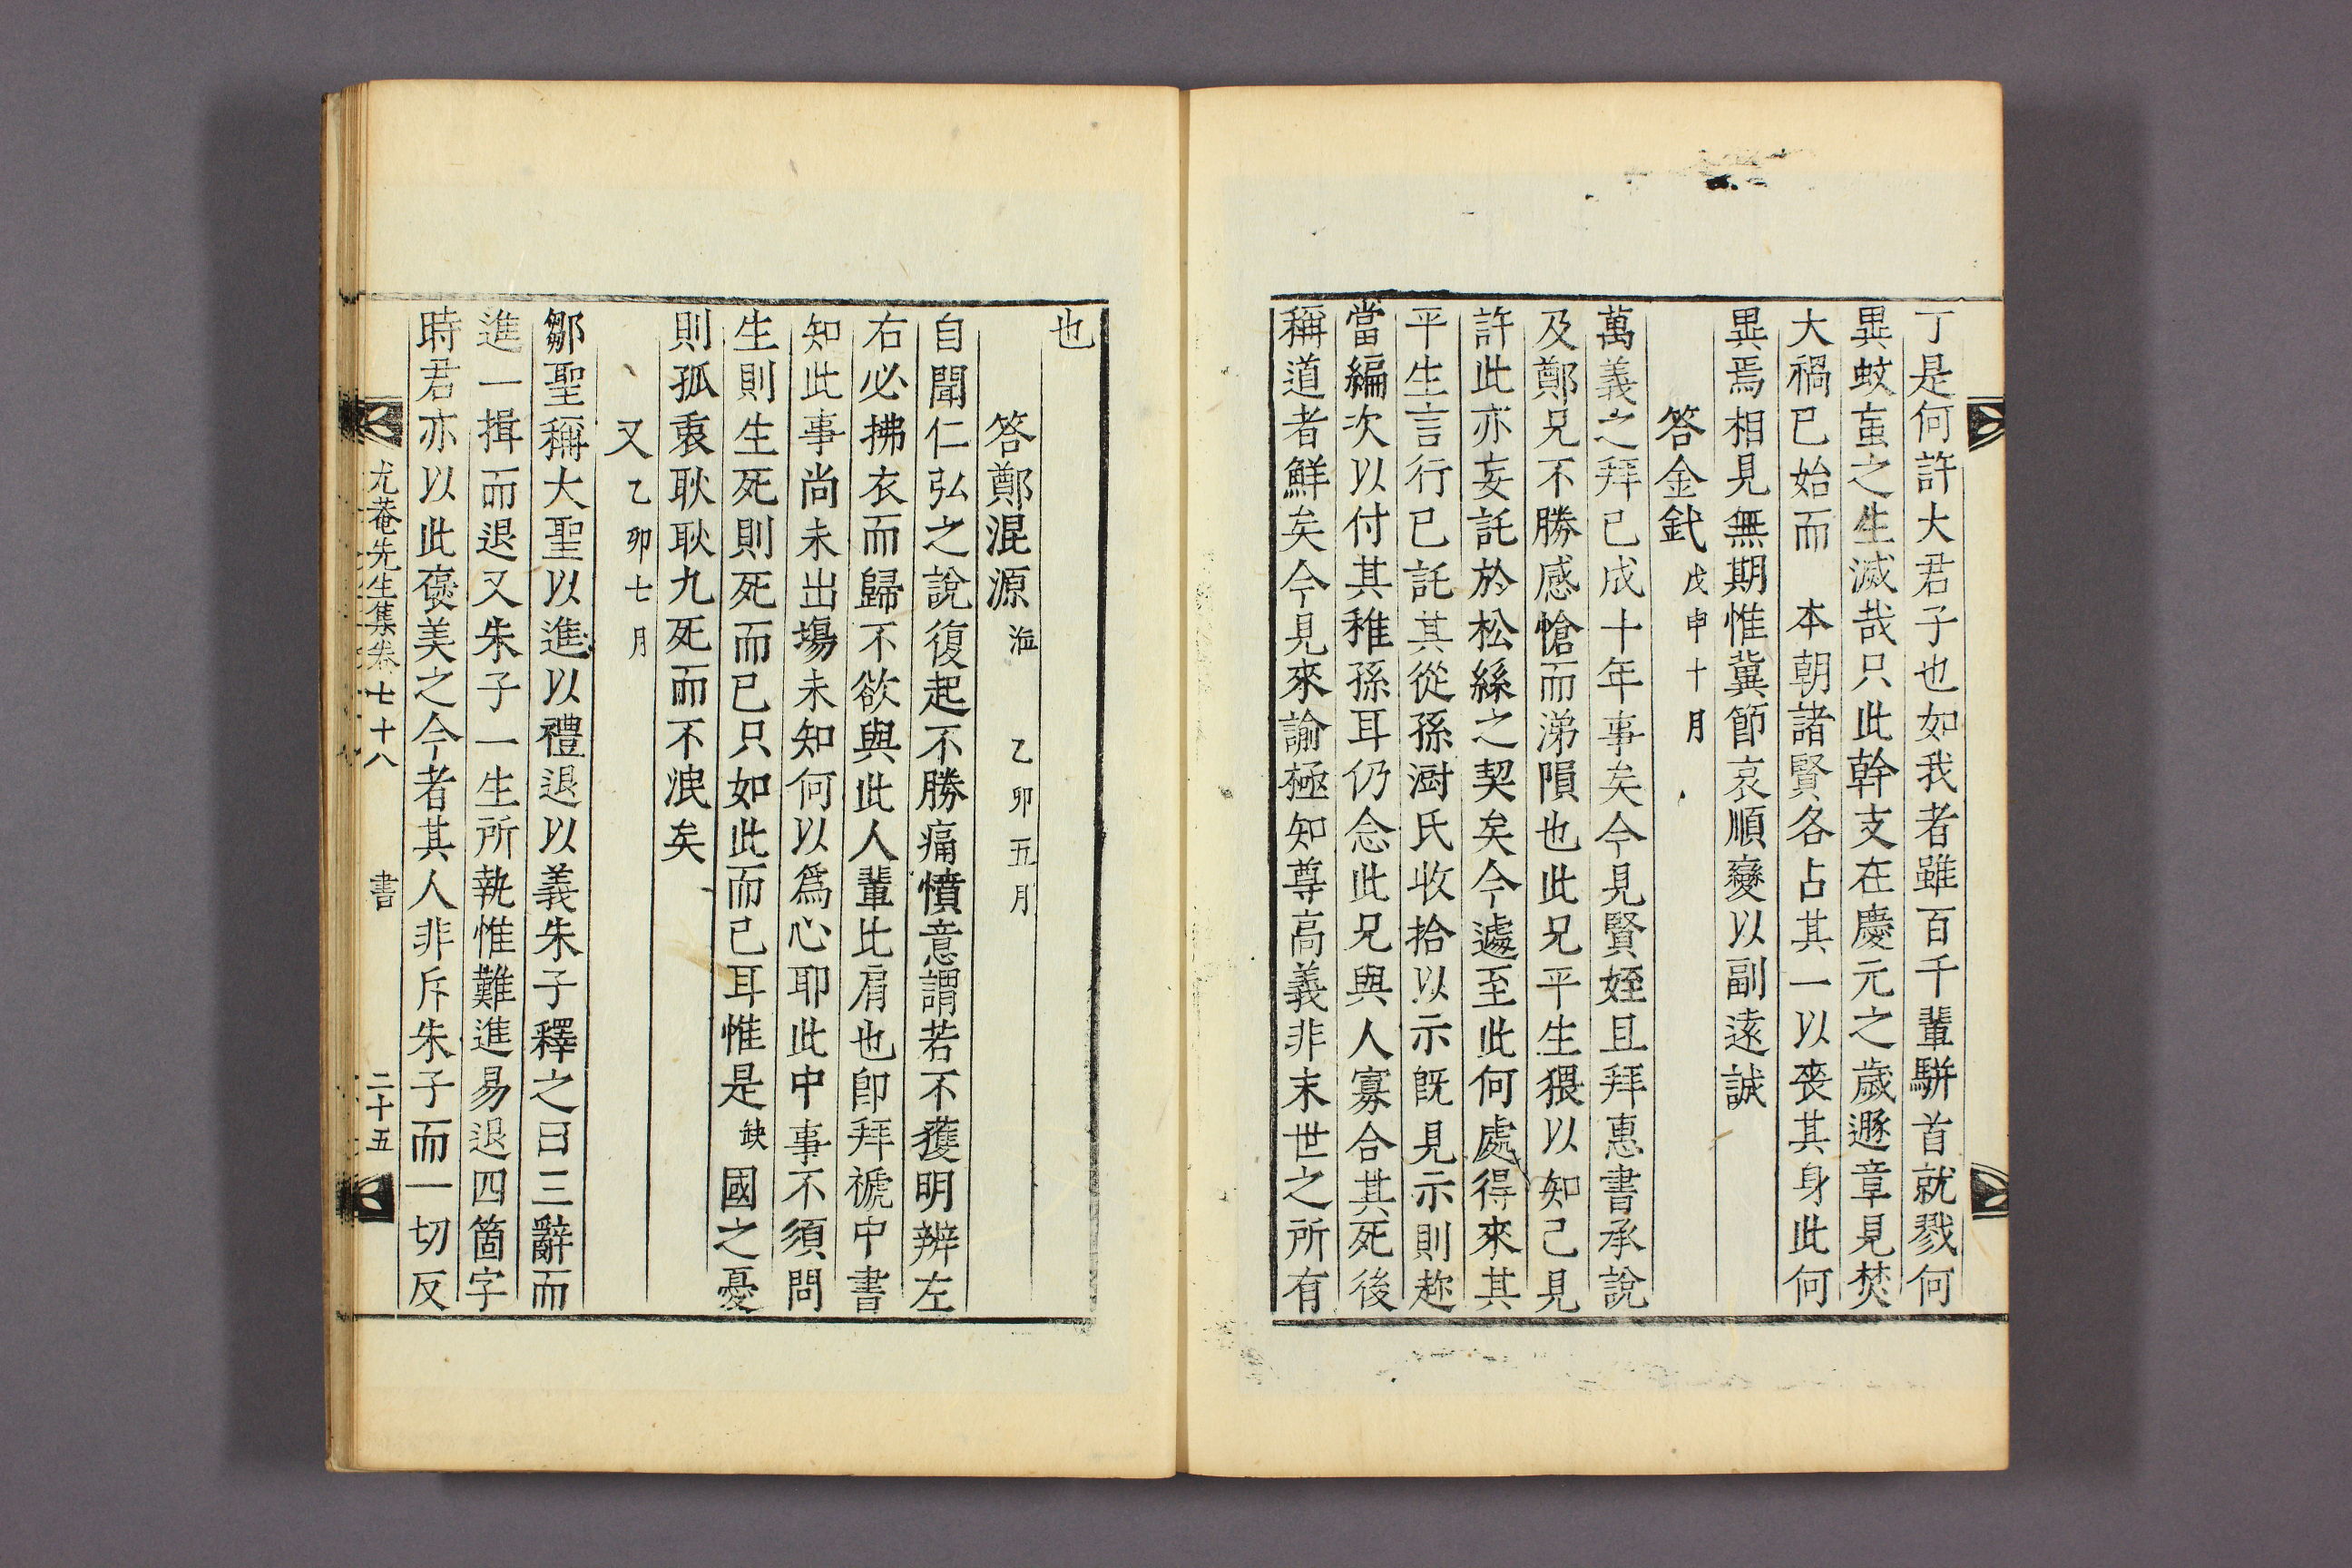 丁是何許大君子也如我者雖百千輩騈首就戮何
異蚊蝱之生滅哉只此幹支在慶元之歲遯章見焚
大禍已始而 本朝諸賢各占其一以喪其身此何
異焉相見無期惟冀節哀順變以副遠誠
答金𨥭戊申十月
萬義之拜已成十年事矣今見賢姪且拜惠書承說
及鄭兄不勝感愴而涕隕也此兄平生猥以知己見
許此亦妄託於松絲之契矣今遽至此何處得來其
平生言行已託其從孫澍氏收拾以示旣見示則趂
當編次以付其稚孫耳仍念此兄與人寡合其死後
稱道者鮮矣今見來諭極知尊高義非末世之所有
也
答鄭混源 乙卯五月
自聞仁弘之說復起不勝痛憤意謂若不獲明辨左
右必拂衣而歸不欲與此人輩比肩也卽拜褫中書
知此事尚未出場未知何以爲心耶此中事不須問
生則生死則死而已只如此而已耳惟是缺國之憂
則孤衷耿耿九死而不泯矣
又乙卯七月
鄒聖稱大聖以進以禮退以義朱子釋之曰三辭而
進一揖而退又朱子一生所執惟難進易退四箇字
時君亦以此褒美之今者其人非斥朱子而一切反
尤菴先生集卷七十八 書 二十五